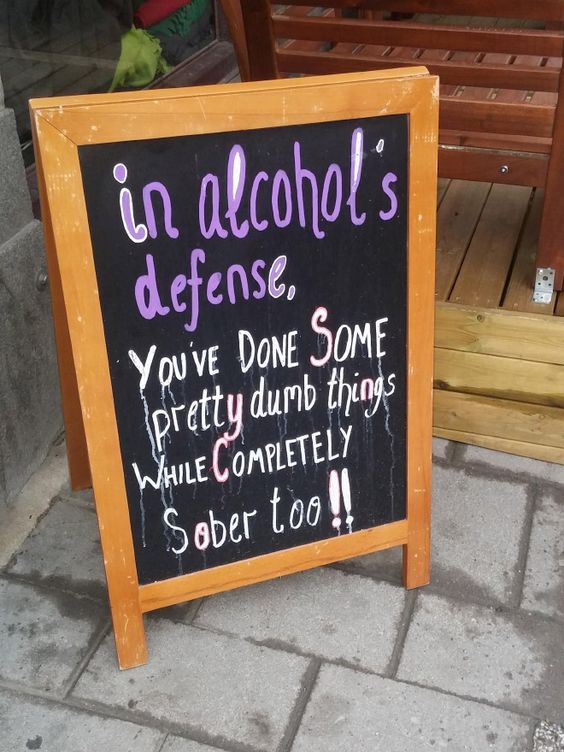 in alcohol's
defense,
YOU'VE DONE SOME
pretty dumb things
WHILE COMPLETELY
Sober too!!